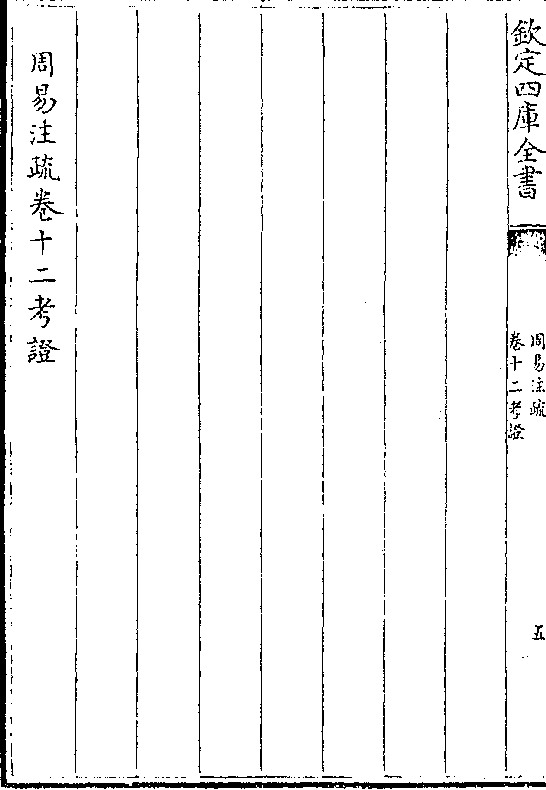 欽定四庫全書
周易注疏
卷十二考證
五
周易注疏卷十二考證